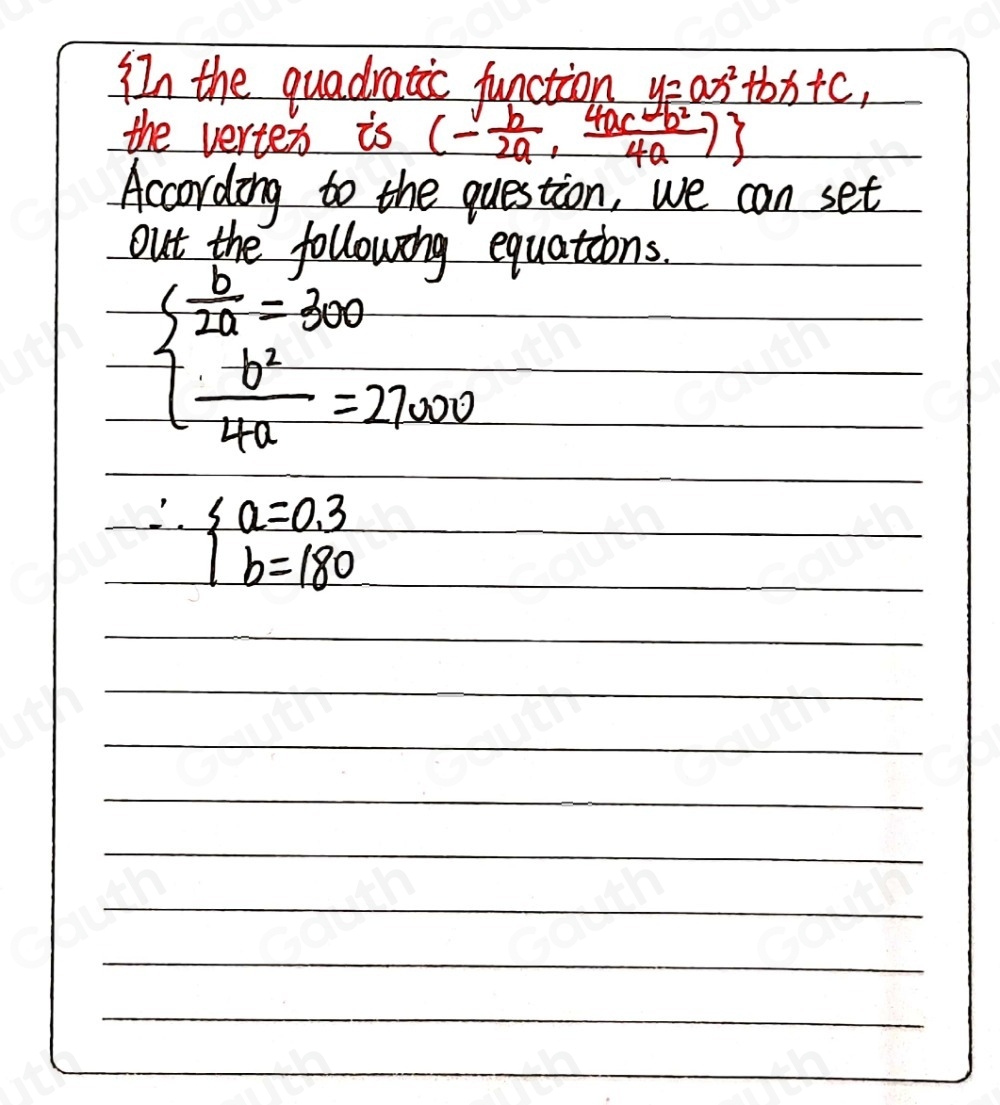 {In the quadratic function y=ax²+bx+c,
the vertex is (-b/2a, 4ac-b²/4a)}
According to the question, we can set
out the following equations.
{ b/2a = 300
b²/4a = 27000
∴ { a=0.3
b=180